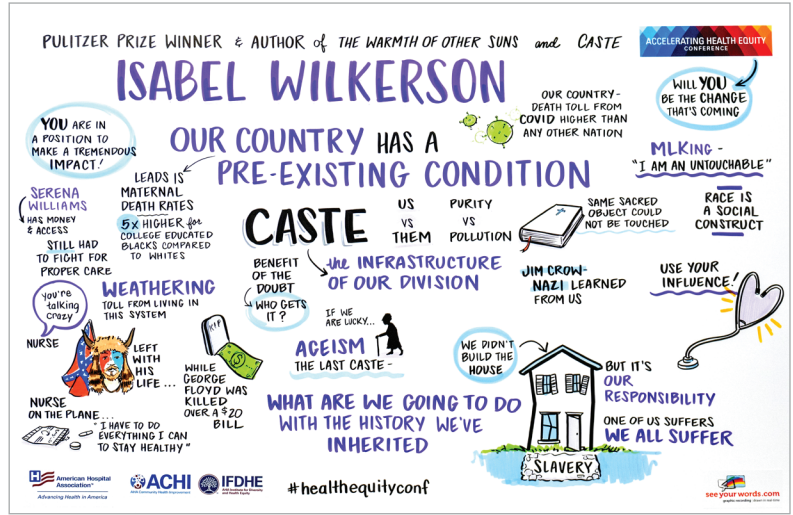 PULITZER PRIZE WINNER & AUTHOR of THE WARMTH OF OTHER SUNS and CASTE
ISABEL WILKERSON
ACCELERATING HEALTH EQUITY
CONFERENCE
WILL YOU
BE THE CHANGE
THAT'S COMING
OUR COUNTRY-
DEATH TOLL FROM
COVID HIGHER THAN
ANY OTHER NATION
YOU ARE IN
A POSITION TO
MAKE A TREMENDOUS
IMPACT!
OUR COUNTRY HAS A
PRE-EXISTING CONDITION
MLKing -
"I AM AN UNTOUCHABLE"
LEADS IS
MATERNAL
DEATH RATES
5x HIGHER for
COLLEGE EDUCATED
BLACKS COMPARED
TO WHITES
SERENA
WILLIAMS
HAS MONEY
& ACCESS
STILL HAD
TO FIGHT FOR
PROPER CARE
CASTE
US
VS
THEM
PURITY
VS
POLLUTION
SAME SACRED
OBJECT COULD
NOT BE TOUCHED
RACE IS
A SOCIAL
CONSTRUCT
the INFRASTRUCTURE
OF OUR DIVISION
BENEFIT
OF THE
DOUBT
WHO GETS
IT?
JIM CROW-
NAZI LEARNED
FROM US
USE YOUR
INFLUENCE!
WEATHERING
TOLL FROM LIVING IN
THIS SYSTEM
you're
talking
crazy
NURSE
LEFT
WITH
HIS
LIFE...
RIP
WHILE
GEORGE
FLOYD WAS
KILLED
OVER A $20
BILL
IF WE
ARE LUCKY...
AGEISM
THE LAST CASTE-
WE DIDN'T
BUILD THE
HOUSE
BUT IT'S
OUR
RESPONSIBILITY
ONE OF US SUFFERS
WE ALL SUFFER
NURSE
ON THE PLANE...
"I HAVE TO DO
EVERYTHING I CAN
TO STAY HEALTHY"
WHAT ARE WE GOING TO DO
WITH THE HISTORY WE'VE
INHERITED
SLAVERY
American Hospital
Association
Advancing Health in America
ACHI
AHA Community Health Improvement
IFDHE
AHA Institute for Diversity
and Health Equity
#healthequityconf
see your words.com
graphic recording · drawn in real time